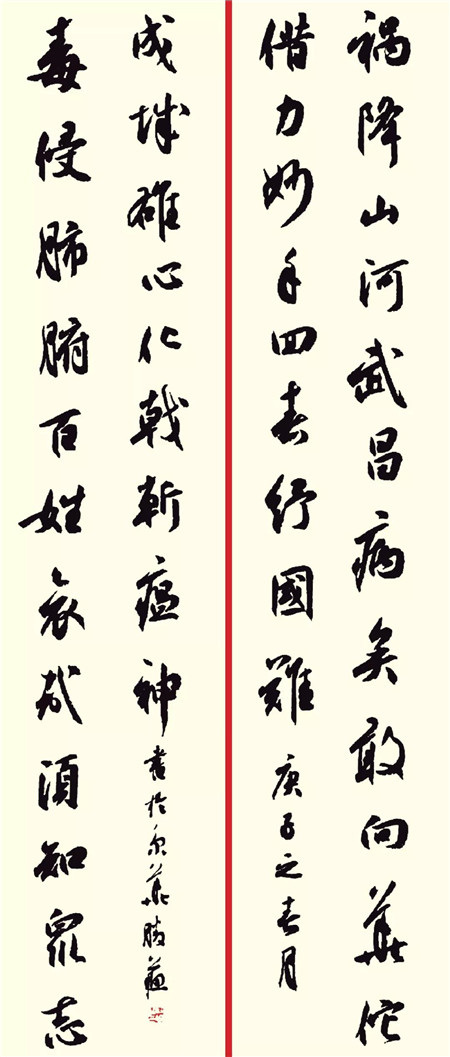 祸降山河武昌病矣敢向華佗
借力妙手回春紓國難 庚子之春月
毒侵肺腑百姓哀哉須知眾志
成城雄心化戟斬瘟神 書於京華